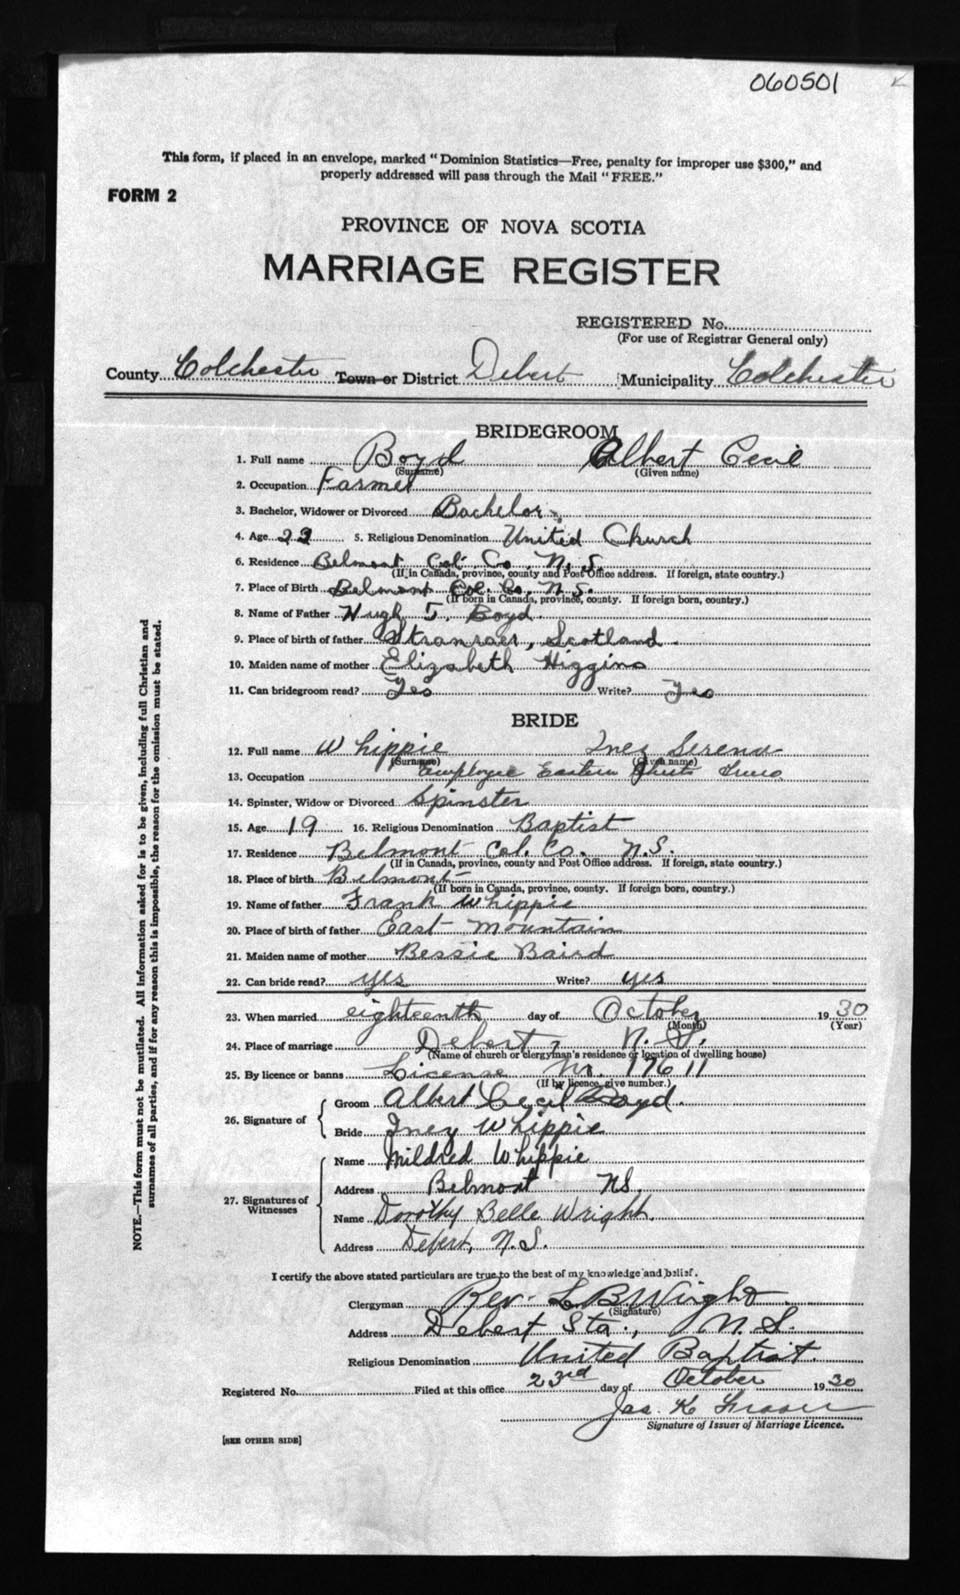 060501
This form, if placed in an envelope, marked "Dominion Statistics—Free, penalty for improper use $300," and
properly addressed will pass through the Mail "FREE."
FORM 2
PROVINCE OF NOVA SCOTIA
MARRIAGE REGISTER
REGISTERED No.
(For use of Registrar General only)
County Colchester Town or District Debert Municipality Colchester
BRIDEGROOM
1. Full name Boyd Albert Cecil
(Surname) (Given name)
2. Occupation Farmer
3. Bachelor, Widower or Divorced Bachelor
4. Age 5. Religious Denomination United Church
6. Residence Belmont Col. Co. N.S.
(If in Canada, province, county and Post Office address. If foreign, state country.)
7. Place of Birth Belmont Col. Co. N.S.
(If born in Canada, province, county. If foreign born, country.)
8. Name of Father Hugh Boyd
9. Place of birth of father Stranraer, Scotland
10. Maiden name of mother Elizabeth Higgins
11. Can bridegroom read? Yes Write? Yes
BRIDE
12. Full name Whippie Inez Serena
(Surname) (Given name)
13. Occupation Employee Eastern Truro
14. Spinster, Widow or Divorced Spinster
15. Age 19 16. Religious Denomination Baptist
17. Residence Belmont Col. Co. N.S.
(If in Canada, province, county and Post Office address. If foreign, state country.)
18. Place of birth Belmont
(If born in Canada, province, county. If foreign born, country.)
19. Name of father Frank Whippie
20. Place of birth of father East Mountain
21. Maiden name of mother Bessie Baird
22. Can bride read? yes Write? yes
23. When married eighteenth day of October 1930
(Month) (Year)
24. Place of marriage Debert, N.S.
(Name of church or clergyman's residence or location of dwelling house)
25. By licence or banns License No. 17611
(If by licence, give number.)
26. Signature of
Groom Albert Cecil Boyd.
Bride Inez Whippie
27. Signatures of
Witnesses
Name Mildred Whippie
Address Belmont NS.
Name Dorothy Belle Wright.
Address Debert, N.S.
I certify the above stated particulars are true to the best of my knowledge and belief.
Clergyman Rev. L B Wright
(Signature)
Address Debert Sta., N.S.
Religious Denomination United Baptist.
Registered No. Filed at this office 23rd day of October 1930
Jas. K Fraser
Signature of Issuer of Marriage Licence.
[SEE OTHER SIDE]
NOTE.—This form must not be mutilated. All information asked for is to be given, including full Christian and
surnames of all parties, and if for any reason this is impossible, the reason for the omission must be stated.